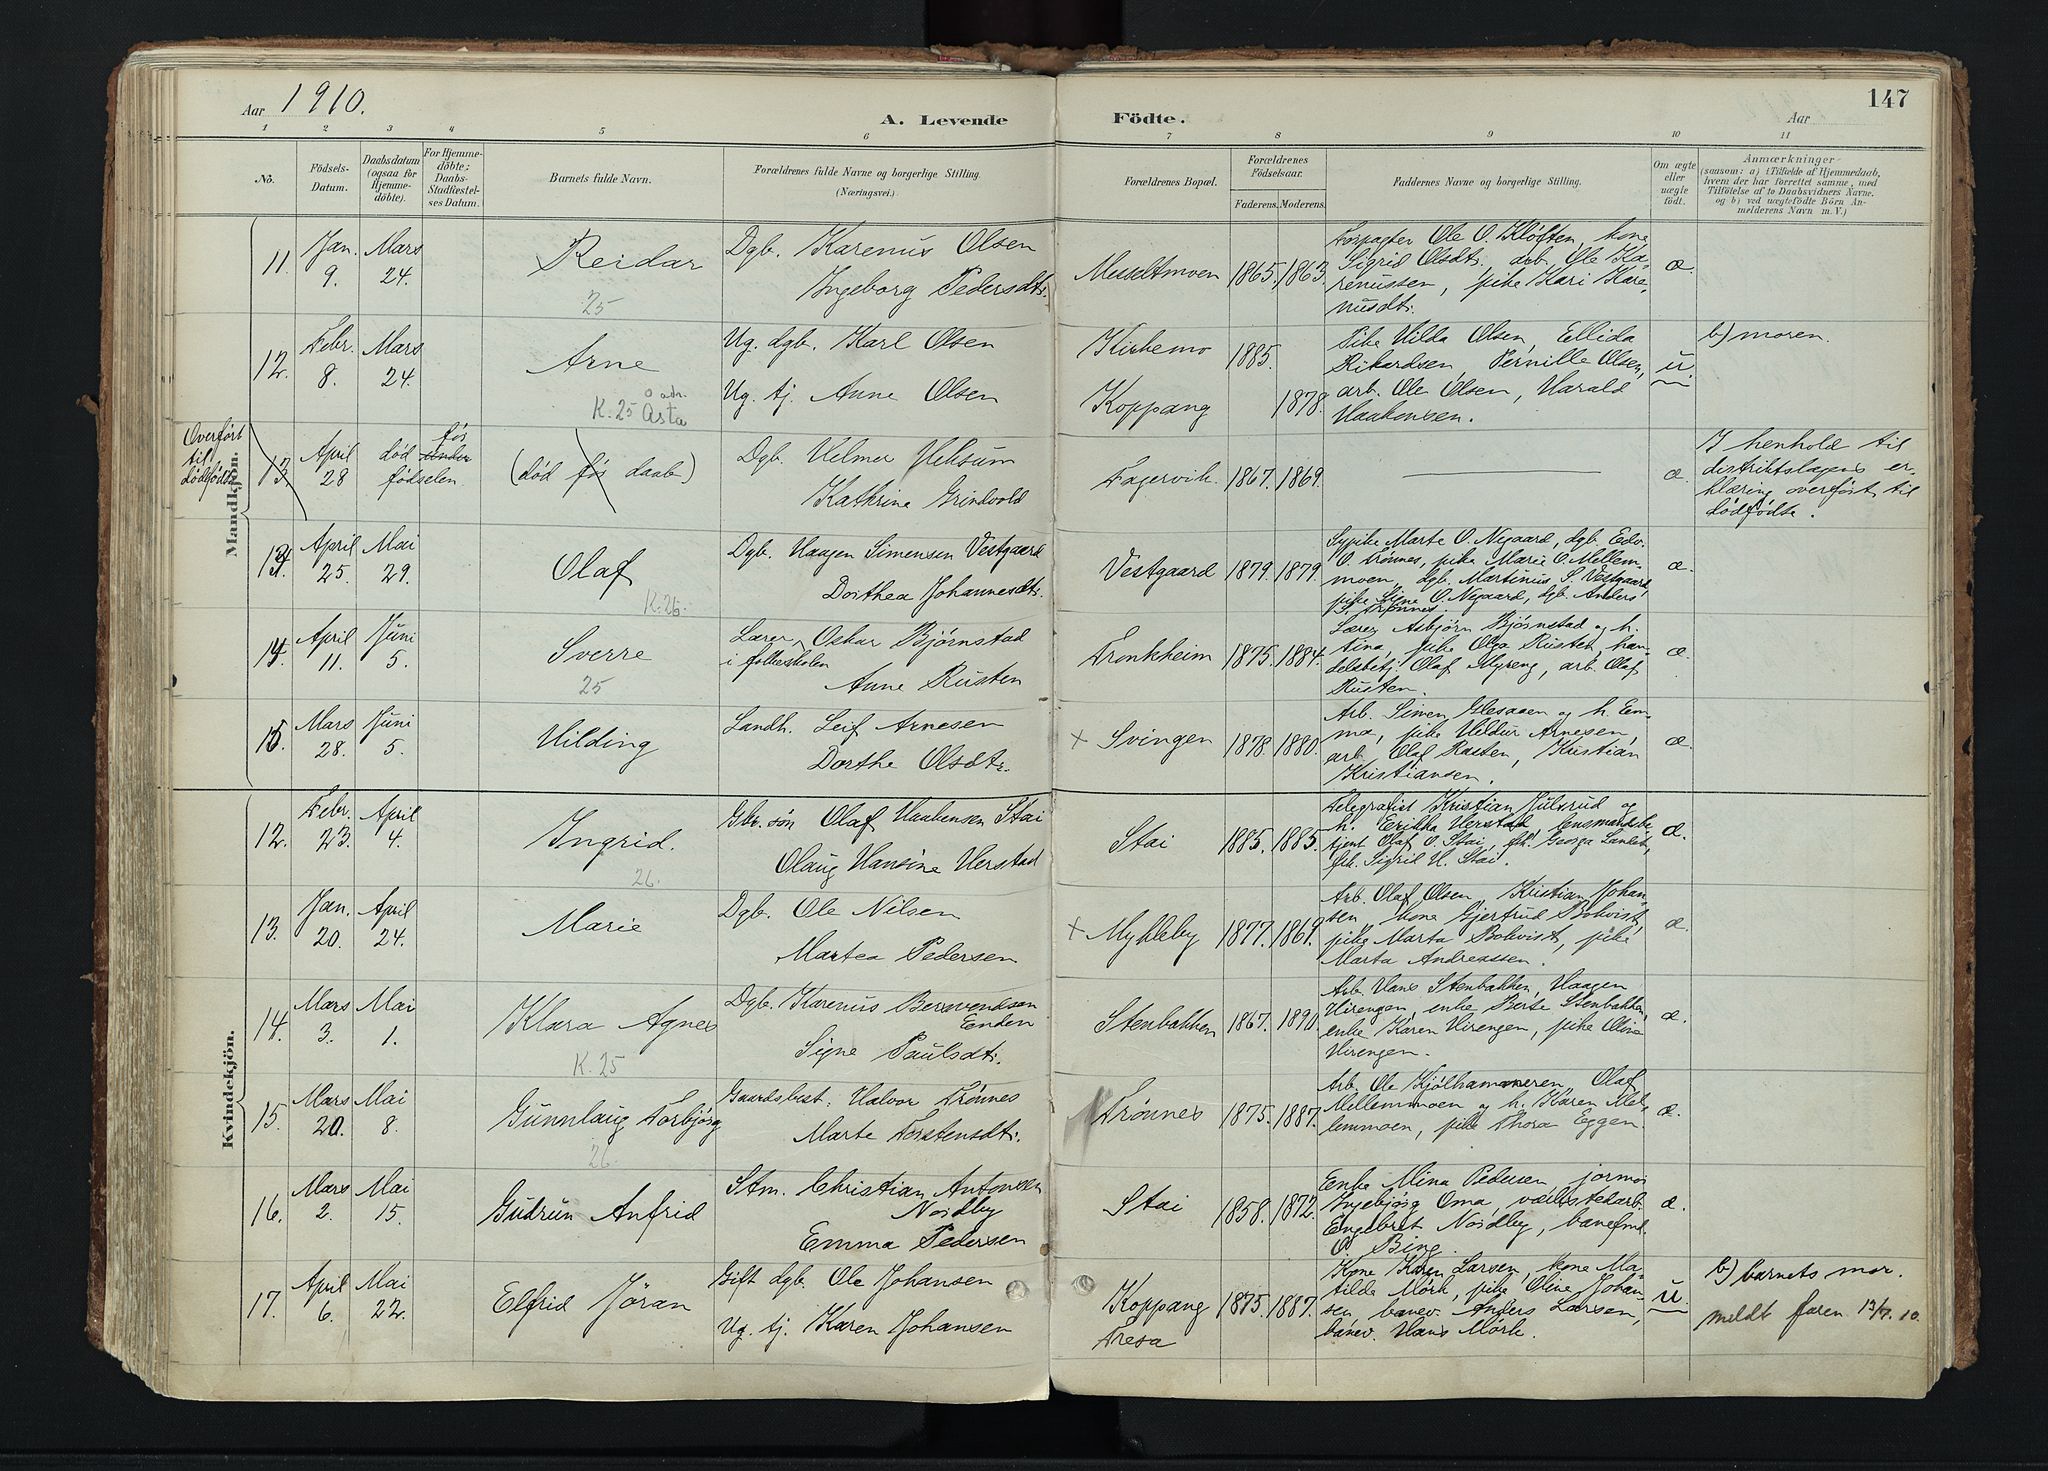 Aar 1910. A. Levende Födte. Aar 147
1 2 3 4 5 6 7 8 9 10 11
No. Födsels-Datum. Daabsdatum (ogsaa for Hjemme-döbte). For Hjemme-döbte; Daabs-Stadfæstel-ses Datum. Barnets fulde Navn. Forældrenes fulde Navne og borgerlige Stilling. (Næringsvei.) Forældrenes Bopæl. Forældrenes Födselsaar. Faderens. Moderens. Faddernes Navne og borgerlige Stilling. Om ægte eller uægte födt. Anmærkninger (saasom: a) i Tilfælde af Hjemmedaab, hvem der har forrettet samme, med Tilföielse af to Daabsvidners Navne, og b) ved uægtefödte Börn An-melderens Navn m. V.)
Mandkjön.
11. Jan. 9. Mars 24. Reidar 25
Dgb. Karenus Olsen
Ingeborg Pedersdtr.
Messeltmoen 1865. 1863.
Forpagter Ole O. Kløften, kone
Sigrid Olsdtr. arb. Ole Ka-
renussen, pike Kari Kare-
nusdtr.
æ.
12. Febr. 8. Mars 24. Arne
K. 25 Asta
Ug. dgb. Karl Olsen
Ug. tj. Anne Olsen
Kirkemo 1885.
Koppang 1878.
Pike Hilda Olsen, Ellida
Rikardsen, Pernille Olsen,
arb. Ole Olsen, Harald
Haakensen.
u.
b) moren.
Overført til dødfødte
13. April 28 død før under fødselen (død før daab)
Dgb. Helmer Heksum
Kathrine Grindvold
Fagervik. 1867. 1869.
æ.
I henhold til
distriktslægens er-
klæring overført til
dødfødte.
13. April 25. Mai 29. Olaf K. 26.
Dgb. Haagen Simensen Vestgaard
Dorthea Johannesdtr.
Vestgaard 1879. 1879.
Sypike Marte O. Negaard, dgb. Edv.
O. Trønnes, pike Marie O. Mellem-
moen, dgb. Martinius S. Vestgaard,
pike Signe O. Negaard, dgb. Anders
Trønnes.
æ.
14. April 11. Juni 5. Sverre 25
Lærer i folkeskolen Oskar Bjørnstad
Anne Rusten
Tronkheim 1875. 1884.
Lærer Asbjørn Bjørnstad og h.
tina, pike Olga Rusten, han-
delsbetj. Olaf Myreng, arb. Olaf
Rusten.
æ.
15. Mars 28. Juni 5. Hilding
Landh. Leif Arnesen
Dorthe Olsdtr.
× Svingen 1878. 1880.
Arb. Simen Glesaaen og h. Em-
ma, pike Hildur Arnesen,
arb. Olaf Rasten, Kristian
Kristiansen.
æ.
Kvindekjön.
12. Febr. 23. April 4. Ingrid. 26.
Gbr. søn Olaf Haakensen Stai
Olaug Hansine Herstad
Stai 1885. 1885.
Telegrafist Kristian Julsrud og
h. Erikka Herstad, lensmandsbe-
tjent Olaf O. Stai, frk. Georga Landet,
frk. Sigrid H. Stai.
æ.
13. Jan. 20. April 24. Marie
Dgb. Ole Nilsen
Martea Pedersen
× Mykleby 1877. 1869.
Arb. Olaf Olsen, Kristian Johan-
sen, kone Gjertrud Bokvist,
pike Marta Bokvist, pike
Marta Andreassen.
æ.
14. Mars 3. Mai 1. Klara Agnes K. 25
Dgb. Karenus Berntvendsen
Enden
Signe Paulsdtr.
Stenbakken 1867. 1890.
Arb. Hans Stenbakken, Haagen
Hirengen, enke Berte Stenbakken,
enke Karen Hirengen, pike Oline
Hirengen.
æ.
15. Mars 20. Mai 8. Gunnlaug Torbjørg 26.
Gaardsbest. Halvor Trønnes
Marte Torstensdtr.
Trønnes 1875. 1887.
Arb. Ole Kjølhammeren, Olaf
Mellemmoen og h. Karen Mel-
lemmoen, pike Thora Eggen.
æ.
16. Mars 2. Mai 15. Gudrun Anfrid
Stm. Christian Antonsen
Nordby
Emma Pedersen
Stai 1858. 1872.
Enke Mina Pedersen, jormor
Ingebjørg Oma, verkstedarb.
Engebret Nordby, banefmd.
O. Bing.
æ.
17. April 6. Mai 22. Elfrid Jøran
Gift dgb. Ole Johansen
Ug. tj. Karen Johansen
Koppang 1875. 1887.
Træsa
Kone Karen Larsen, kone Ma-
tilde Mørk, pike Oline Johan-
sen, banev. Anders Larsen,
banev. Hans Mørk.
u.
b) barnets mor.
meldt faren 13/7. 10.